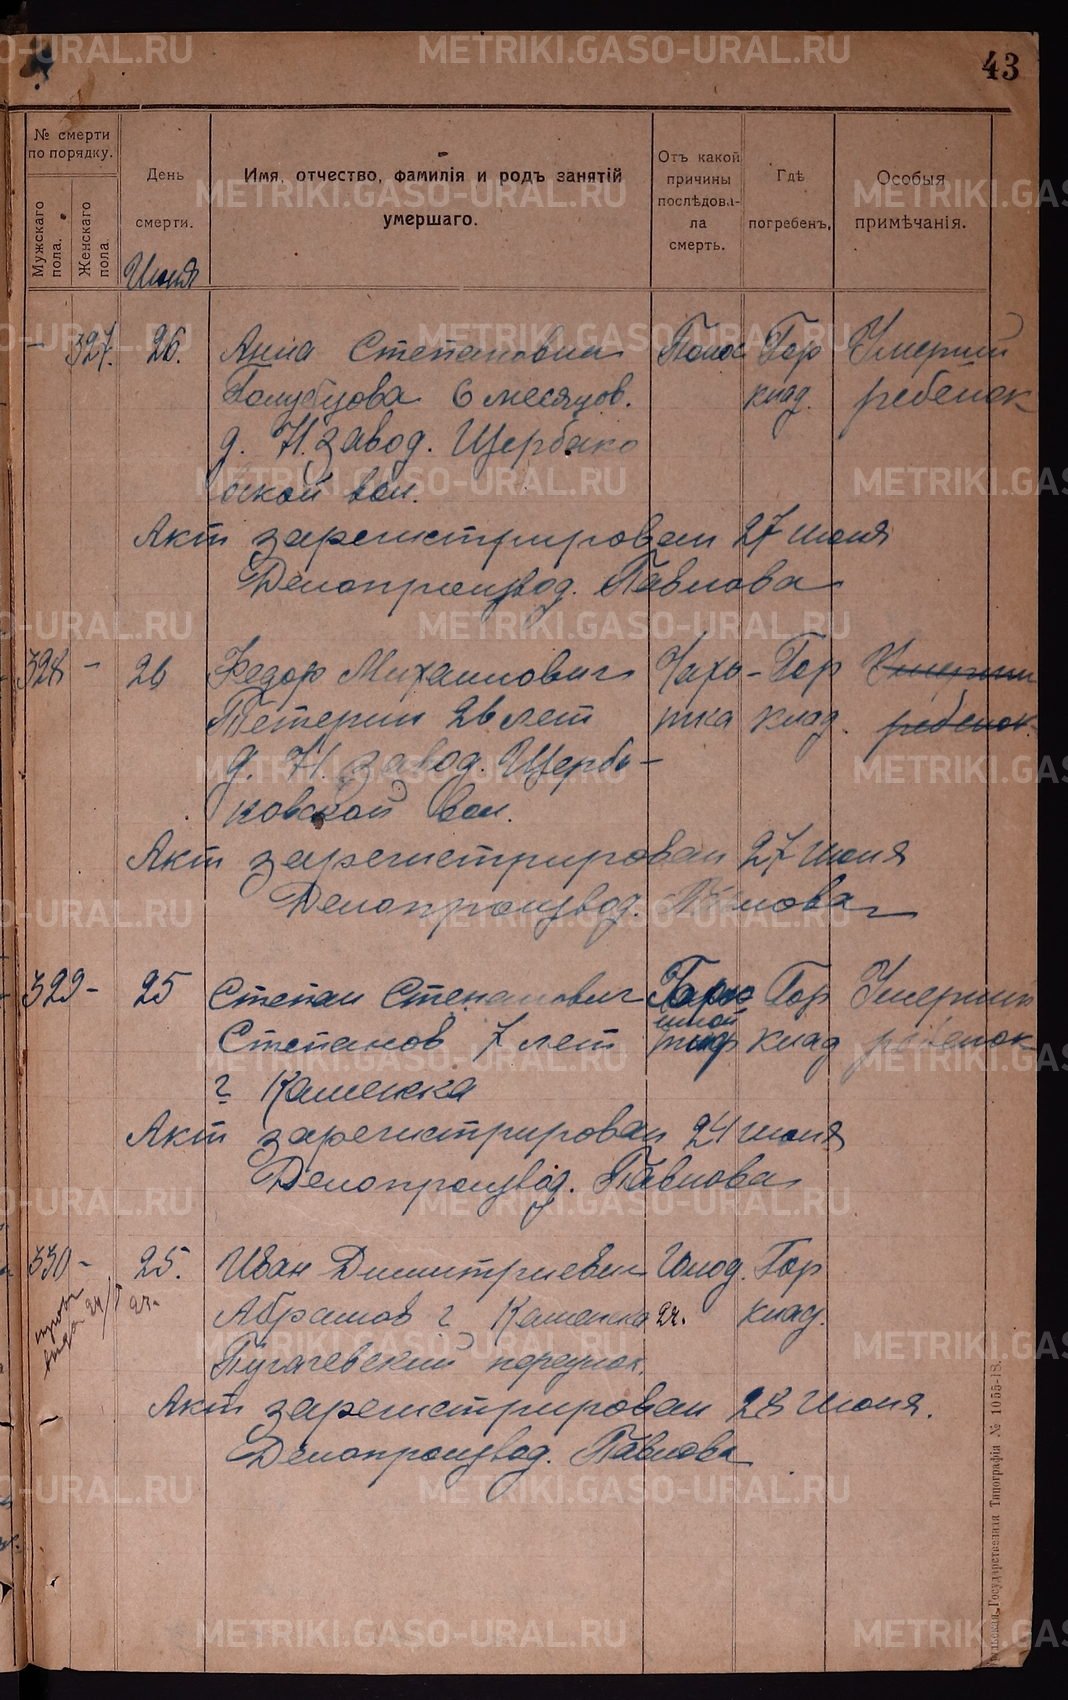 43
№ смерти по порядку.
Мужскаго пола.
Женскаго пола.
День смерти.
Имя, отчество, фамилія и родъ занятій умершаго.
Отъ какой причины послѣдова-ла смерть.
Гдѣ погребенъ.
Особыя примѣчанія.
Июня
- 327. 26. Анна Степановна Понос Гор Умерший
Голубцова 6 месяцов. клад. ребенок
д. Н. завод. Щербако
вской вол.
Акт зарегистрирован 27 июня
Делопроизвод. Павлова
328 - 26 Федор Михаилович Чахо- Гор Умерший
Тетерин 26 лет тка клад. ребенок.
д. Н. завод. Щерба-
ковской вол.
Акт зарегистрирован 27 июня
Делопроизвод. Павлова
329 - 25 Степан Степанович Гор Умерший
Степанов 7 лет тиф клад ребенок
г Каменска
Акт зарегистрирован 24 июня
Делопроизвод. Павлова
330 - 25. Иван Димитриевич Голод. Гор
Абрамов г Каменска 22. клад.
Пугачевский переулок.
Акт зарегистрирован 28 Июня.
Делопроизвод. Павлова
Государственная Типографія № 1055-18.
METRIKI.GASO-URAL.RU